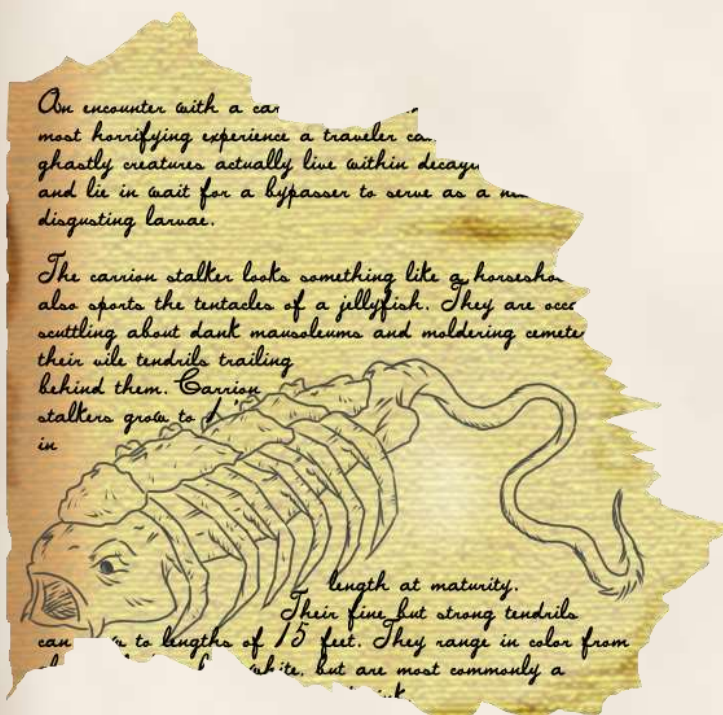 An encounter with a
most horrifying experience a traveler
ghastly creatures actually live within
and lie in wait for a bypasser to serve as a
disgusting larvae.
The carrion stalker looks something like a
also sports the tentacles of a jellyfish. They are
scuttling about dank mausoleums and moldering
their vile tendrils trailing
behind them. Carrion
stalkers grow to
in
length at maturity.
Their fine but strong tendrils
can to lengths of 15 feet. They range in color from
white, but are most commonly a